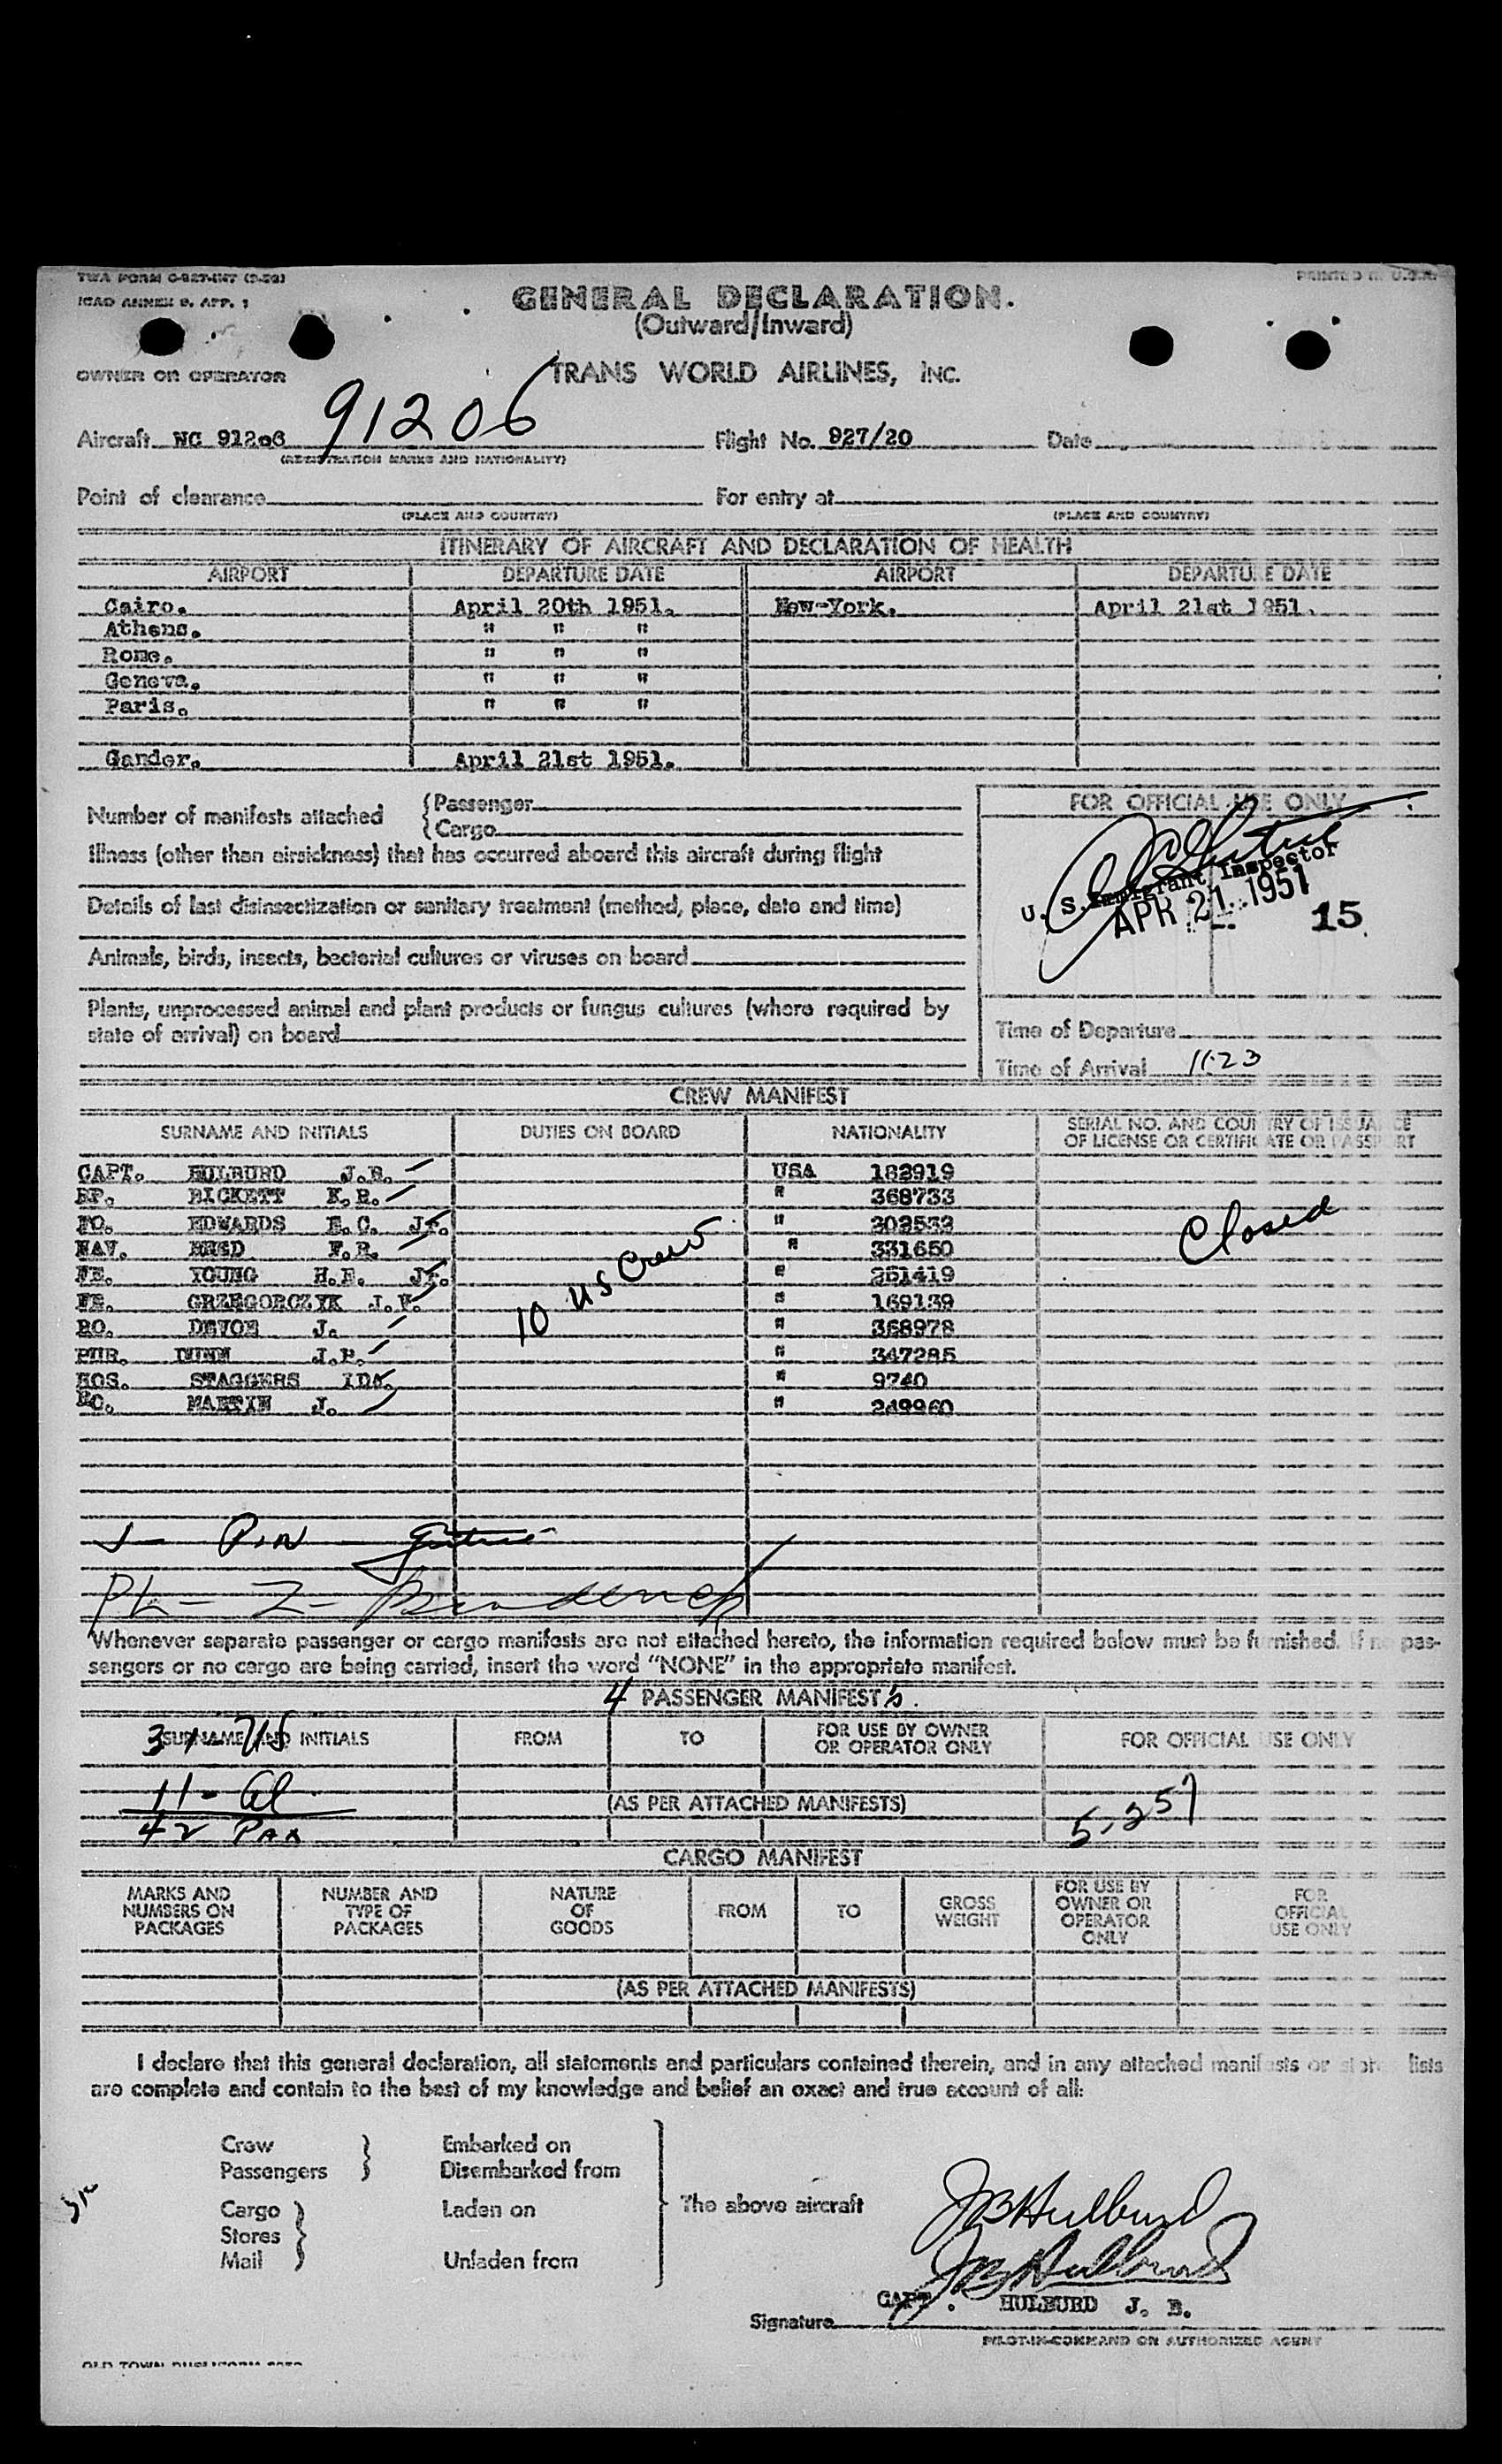 TWA FORM C-927-INT (2-50)
PRINTED IN U.S.A.
ICAO ANNEX 9, APP. 1
GENERAL DECLARATION.
(Outward/Inward)
OWNER OR OPERATOR
TRANS WORLD AIRLINES, INC.
91206
Aircraft NC 91206 Flight No. 927/20 Date
(REGISTRATION MARKS AND NATIONALITY)
Point of clearance For entry at
(PLACE AND COUNTRY) (PLACE AND COUNTRY)
ITINERARY OF AIRCRAFT AND DECLARATION OF HEALTH
AIRPORT DEPARTURE DATE AIRPORT DEPARTURE DATE
Cairo. April 20th 1951. New-York. April 21st 1951.
Athens. " " "
Rome. " " "
Geneva. " " "
Paris. " " "
Gander. April 21st 1951.
Number of manifests attached {Passenger
{Cargo
FOR OFFICIAL USE ONLY
Illness (other than airsickness) that has occurred aboard this aircraft during flight
U. S. Immigrant Inspector
APR 21 1951 15
Details of last disinsectization or sanitary treatment (method, place, date and time)
Animals, birds, insects, bacterial cultures or viruses on board
Plants, unprocessed animal and plant products or fungus cultures (where required by
state of arrival) on board
Time of Departure
Time of Arrival 11:23
CREW MANIFEST
SURNAME AND INITIALS DUTIES ON BOARD NATIONALITY SERIAL NO. AND COUNTRY OF ISSUANCE
OF LICENSE OR CERTIFICATE OR PASSPORT
CAPT. HULBURD J.B. USA 182919
RP. RICKETT K.R. " 368733
FO. EDWARDS E.C. Jr. " 302532
NAV. F.R. " 331650
FE. YOUNG H.E. Jr. " 251419
FE. GRZEGORCZYK J.F. " 169139
RO. DEVON J. " 368978
PUR. DUNN J.P. " 347285
HOS. STAGGERS IDA. " 9740
MARTIN J. " 249960
10 US Crew
Closed
Whenever separate passenger or cargo manifests are not attached hereto, the information required below must be furnished. If no pas-
sengers or no cargo are being carried, insert the word "NONE" in the appropriate manifest.
4 PASSENGER MANIFESTS.
SURNAME AND INITIALS FROM TO FOR USE BY OWNER
OR OPERATOR ONLY FOR OFFICIAL USE ONLY
31 - US
11 - al
42 Pax
(AS PER ATTACHED MANIFESTS)
5-257
CARGO MANIFEST
MARKS AND
NUMBERS ON
PACKAGES
NUMBER AND
TYPE OF
PACKAGES
NATURE
OF
GOODS
FROM TO
GROSS
WEIGHT
FOR USE BY
OWNER OR
OPERATOR
ONLY
FOR
OFFICIAL
USE ONLY
(AS PER ATTACHED MANIFESTS)
I declare that this general declaration, all statements and particulars contained therein, and in any attached manifests or store lists
are complete and contain to the best of my knowledge and belief an exact and true account of all:
Crew Embarked on
Passengers Disembarked from
Cargo Laden on
Stores
Mail Unladen from
The above aircraft
JB Hulburd
JB Hulburd
CAPT. HULBURD J. B.
Signature
PILOT-IN-COMMAND OR AUTHORIZED AGENT